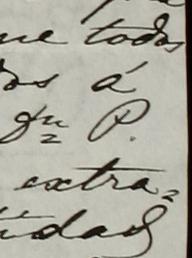 ue todos
os á
P.
extra=
idad